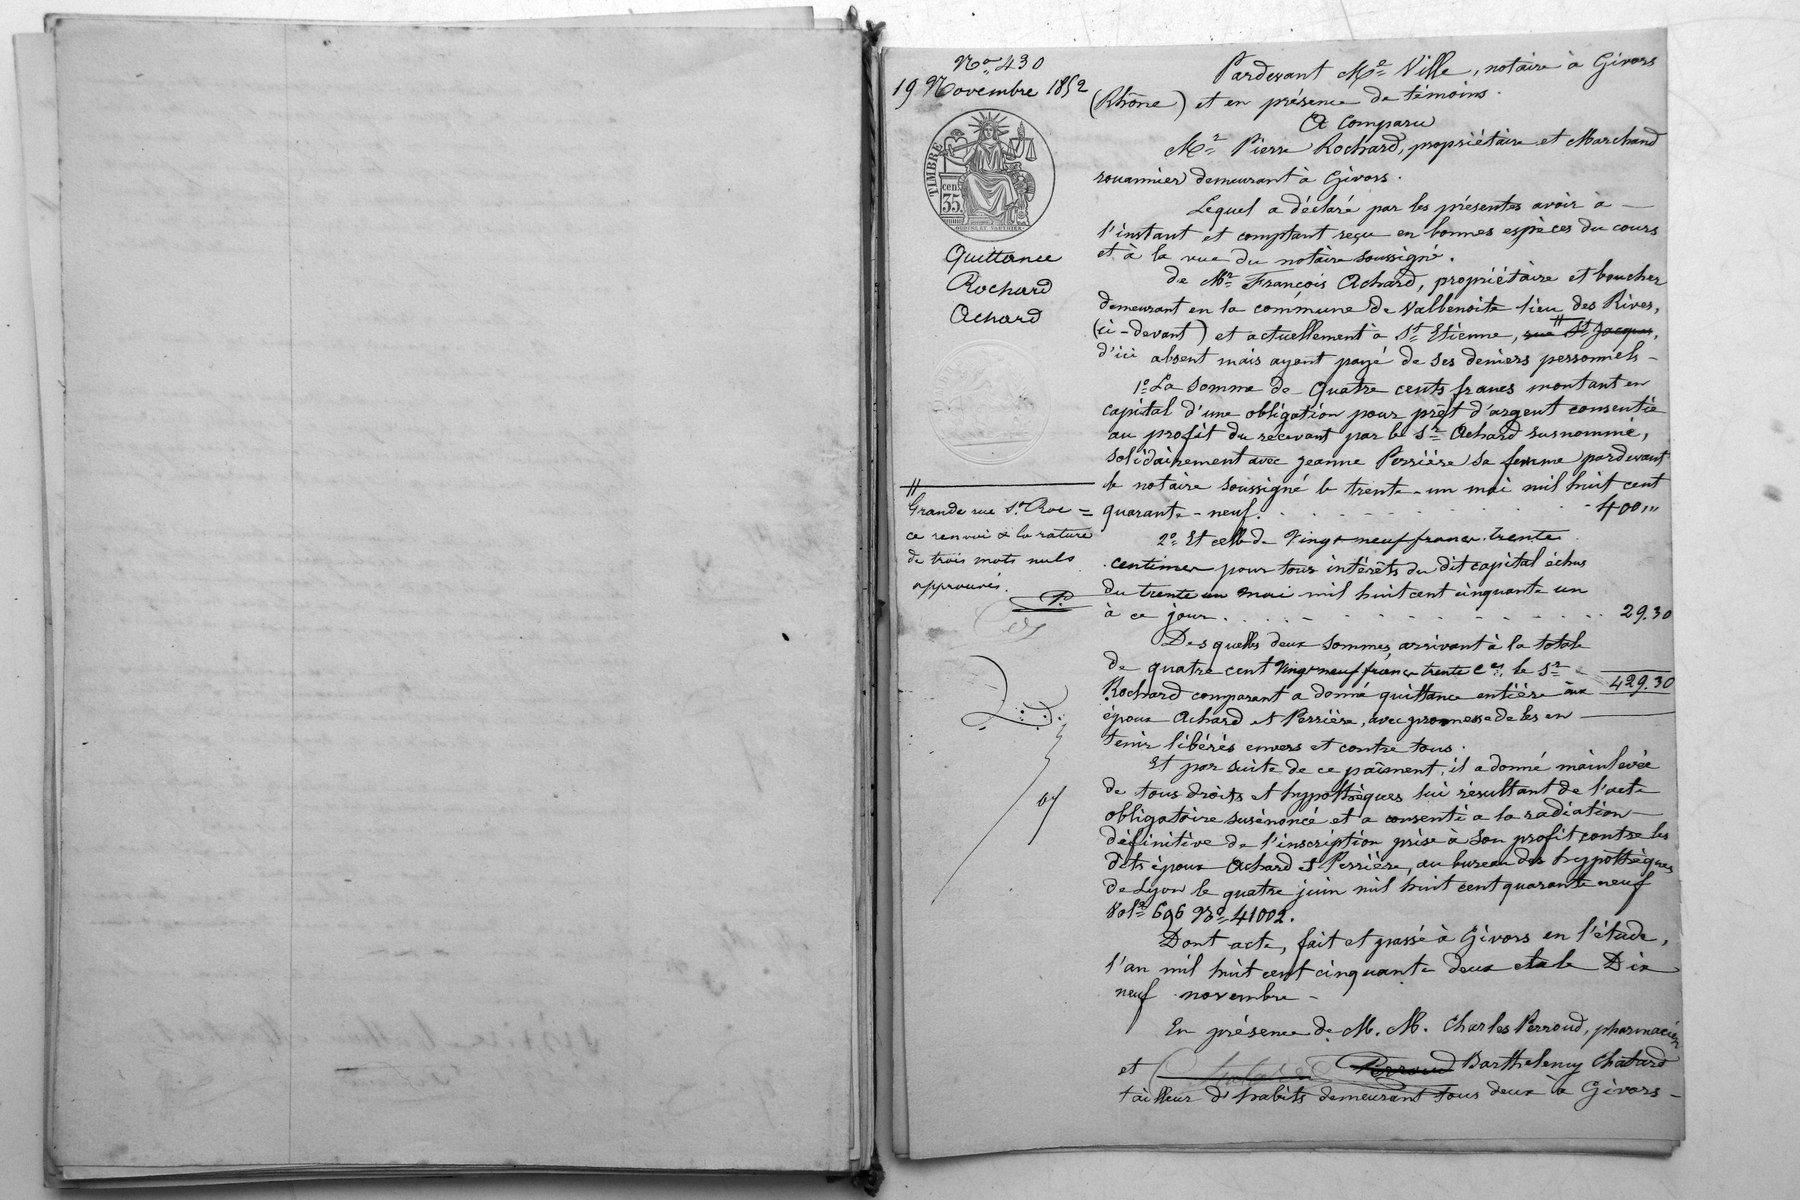 No 430
19 Novembre 1852
TIMBRE
cen.
35.
Quittance
Rochard
Achard
Pardevant Me Ville, notaire à Givors
(Rhône) et en présence de témoins.
A comparu
Mr Pierre Rochard, propriétaire et Marchand
rouannier demeurant à Givors.
Lequel a déclaré par les présentes avoir à
l'instant et comptant reçu en bonnes espèces du cours
et à la vue du notaire soussigné.
de Mr François Achard, propriétaire et boucher
demeurant en la commune de Valbenoite lieu des Rives,
(ci-devant) et actuellement à St Etienne, rue St Jacques,
d'ici absent mais ayent payé de ses deniers personnels -
1o La somme de quatre cents francs montant en
capital d'une obligation pour prêt d'argent consentie
au profit du recevant par le Sr Achard susnommé,
solidairement avec Jeanne Perrière sa femme pardevant
le notaire soussigné le trente-un mai mil huit cent
quarante-neuf. 400 ,,,
2o Et celle de Vingt neuf francs trente
centimes pour tous intérêts du dit capital échus
du trente un mai mil huit cent cinquante un
à ce jour. 29.30
Des quelles deux sommes, arrivant à la totale
de quatre cent vingt neuf francs trente Ces, le Sr
429.30
Rochard comparant a donné quittance entière aux
époux Achard et Perrière, avec promesse de les en
tenir libérés envers et contre tous.
Et par suite de ce paîment, il a donné mainlevée
de tous droits et hypothèques lui résultant de l'acte
obligatoire susénoncé et a consenti à la radiation
définitive de l'inscription prise à son profit contre les
dits époux Achard et Perrière, au bureau des hypothèques
de Lyon le quatre juin mil huit cent quarante neuf
Vole 696 No 41002.
Dont acte, fait et passé à Givors en l'étude,
l'an mil huit cent cinquante deux et le Dix
neuf novembre -
En présence de M. M. Charles Perroud, pharmacien
et Perroud Barthelemy Chatard
tailleur d'habits demeurant tous deux à Givors -
Grande rue St Roc =
ce renvoi & la rature
de trois mots nuls
approuvés.